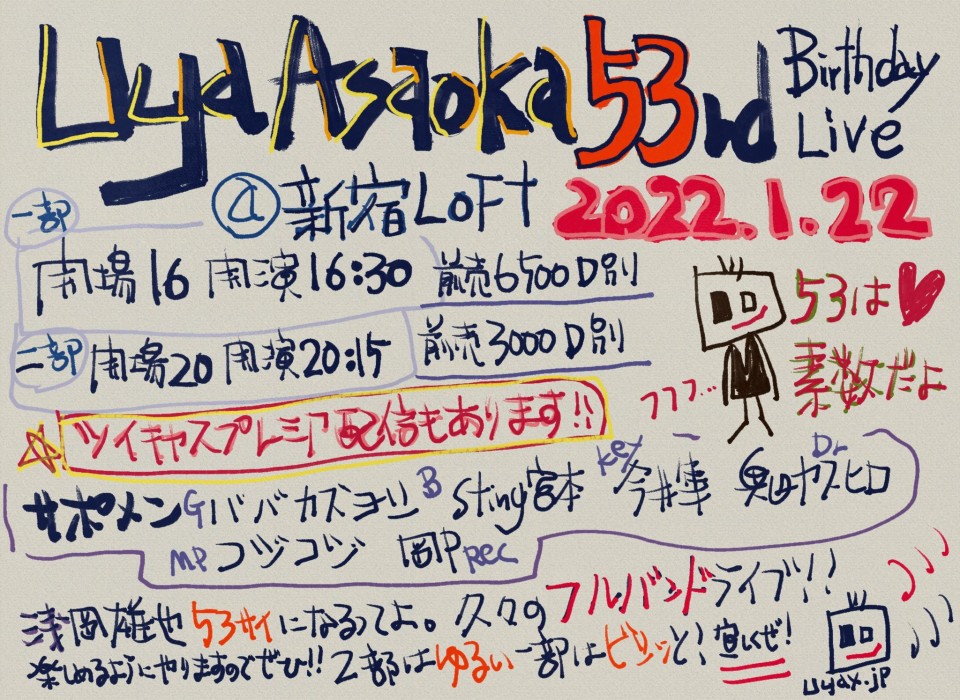 Uya Asaoka 53rd Birthday Live
@新宿LOFT 2022.1.22
一部
開場16 開演16:30 前売6500D別
二部 開場20 開演20:15 前売3000D別
53は♥
素数だよ
フフフ…
☆ツイキャスプレミア配信もあります!!
サポメン G ババカズヨリ B Sting宮本 Key 今井隼 Dr 奥田ヤスヒロ
MP コヅコヅ 岡P REC
浅岡雄也 53サイになるってよ。久々のフルバンドライブ!!
楽しめるようにやりますのでぜひ!! 2部はゆるい 一部はビシッと! 宜しくぜ!
uyax.jp